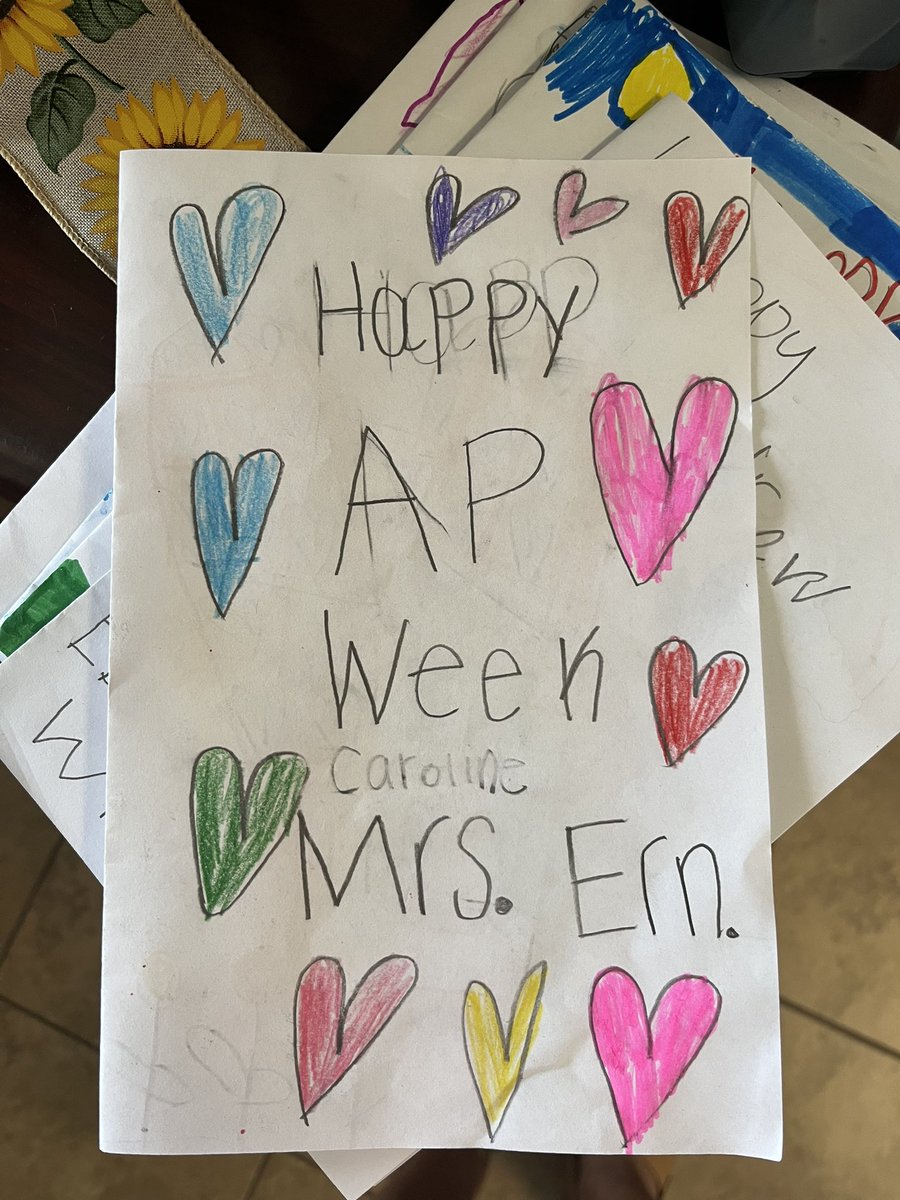 Happy
AP
Week
Caroline
Mrs. Ern.
ppy